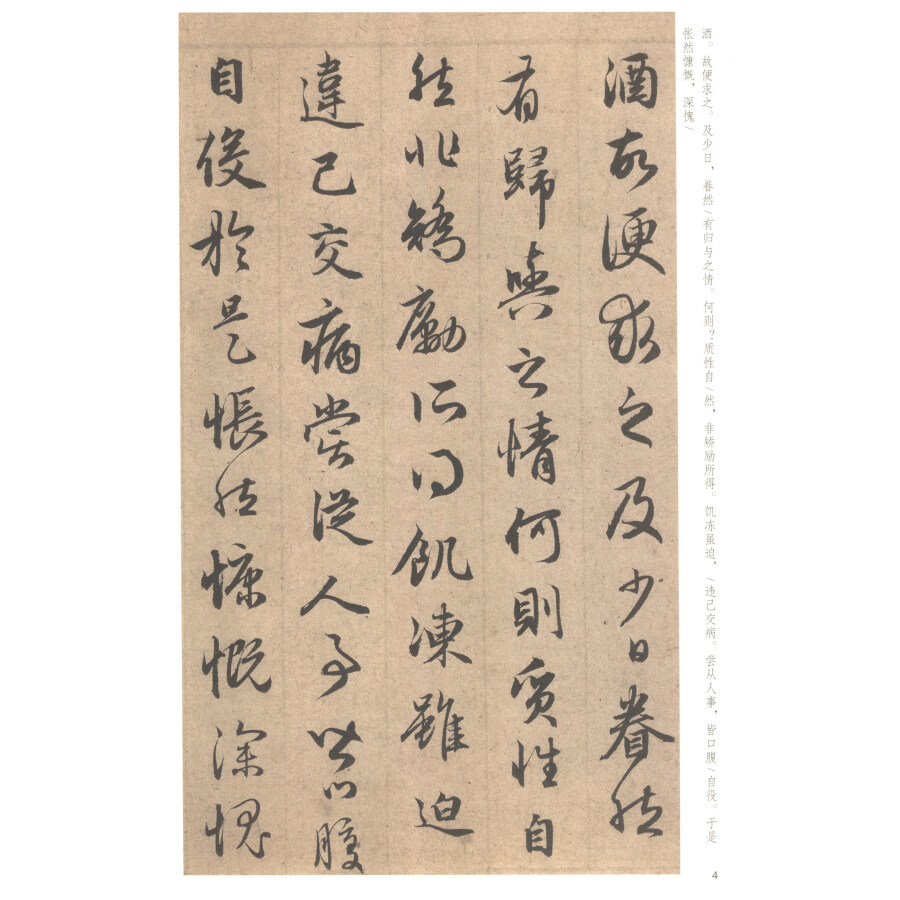 酒。故便求之。及少日，眷然/有归与之情。何则？质性自/然，非矫励所得。饥冻虽迫，/违己交病。尝从人事，皆口腹/自役。于是
怅然慷慨，深愧/
酒故便求之及少日眷然
有歸與之情何則質性自
然非矯勵所得飢凍雖迫
違己交病嘗從人事皆口腹
自役於是悵然慷慨深愧
4